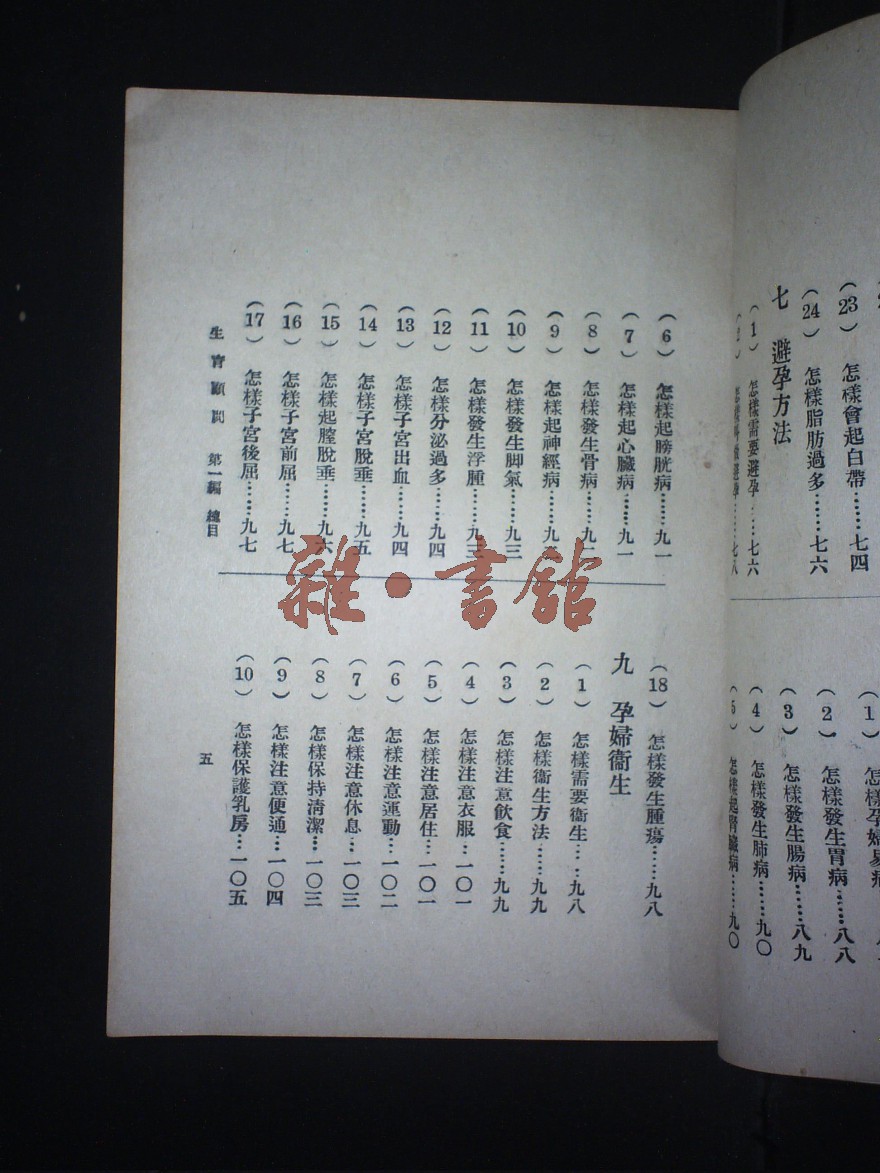 (23) 怎樣會起白帶……七四
(24) 怎樣脂肪過多……七六
七 避孕方法
(1) 怎樣需要避孕……七六
(1)
(2) 怎樣發生胃病……八八
(3) 怎樣發生腸病……八九
(4) 怎樣發生肺病……九〇
(5) 怎樣起腎臟病……九〇
(6) 怎樣起膀胱病……九一
(7) 怎樣起心臟病……九一
(8) 怎樣發生骨病……
(9) 怎樣起神經病……
(10) 怎樣發生脚氣……九三
(11) 怎樣發生浮腫……九三
(12) 怎樣分泌過多……九四
(13) 怎樣子宮出血……九四
(14) 怎樣子宮脫垂……九五
(15) 怎樣起膣脫垂……九六
(16) 怎樣子宮前屈……九七
(17) 怎樣子宮後屈……九七
(18) 怎樣發生腫瘍……九八
九 孕婦衞生
(1) 怎樣需要衞生……九八
(2) 怎樣衞生方法……九九
(3) 怎樣注意飲食……九九
(4) 怎樣注意衣服…一〇一
(5) 怎樣注意居住…一〇一
(6) 怎樣注意運動…一〇二
(7) 怎樣注意休息…一〇三
(8) 怎樣保持淸潔…一〇三
(9) 怎樣注意便通…一〇四
(10) 怎樣保護乳房…一〇五
生育顧問 第一編 總目
五
雜·書館